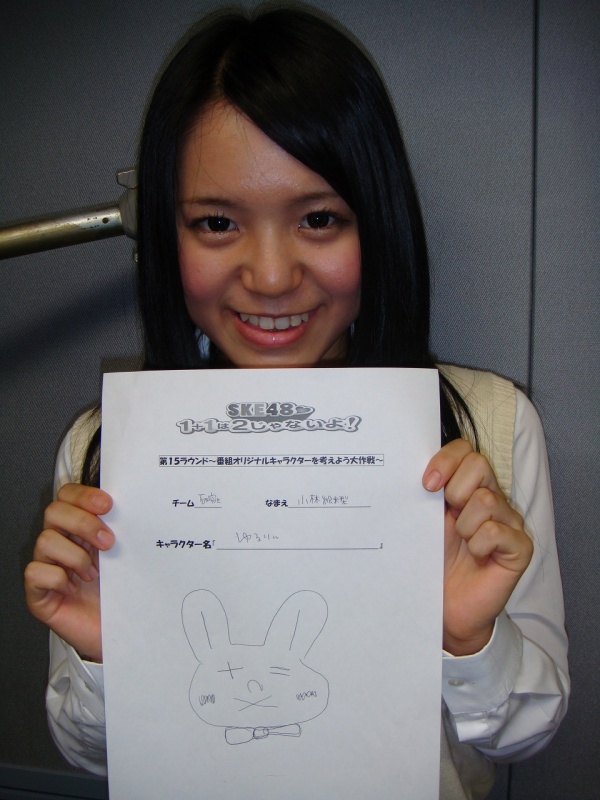 SKE48の
1+1は2じゃないよ!
第15ラウンド〜番組オリジナルキャラクターを考えよう大作戦〜
チーム なまえ 小林絵未梨
キャラクター名「ゆるりん」